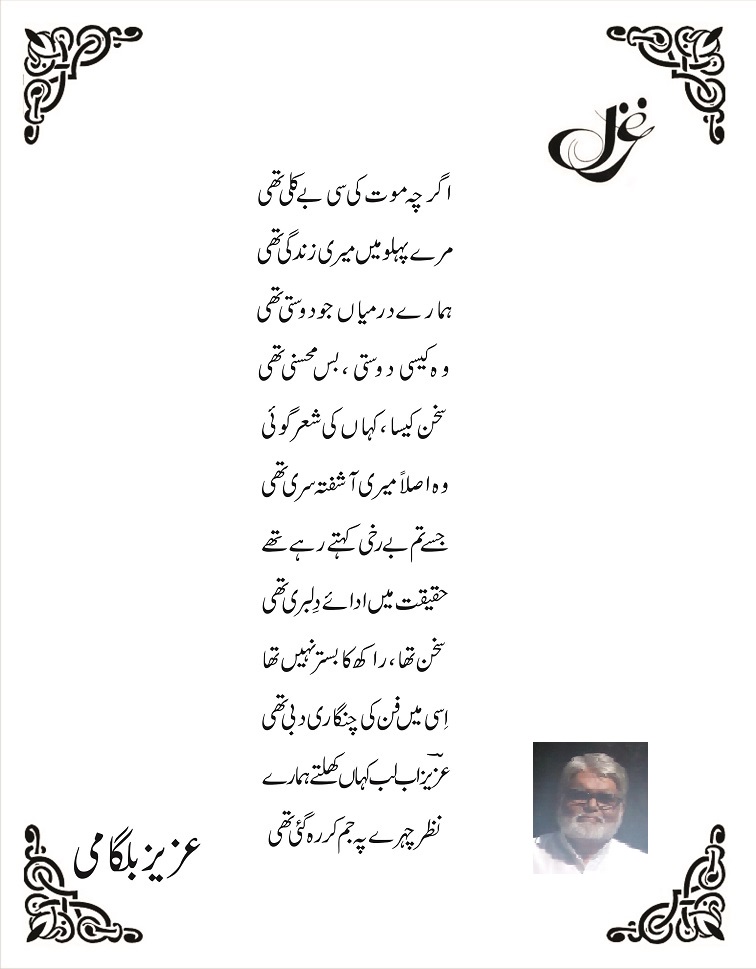 غزل
اگرچہ موت کی سی بے کلی تھی
مرے پہلو میں میری زندگی تھی
ہمارے درمیاں جو دوستی تھی
وہ کیسی دوستی ، بس محسنی تھی
سخن کیسا ، کہاں کی شعر گوئی
وہ اصلاً میری آشفتہ سری تھی
جسے تم بے رخی کہتے رہے تھے
حقیقت میں ادائے دِلبری تھی
سخن تھا ، راکھ کا بستر نہیں تھا
اِسی میں فن کی چنگاری دبی تھی
عزیزؔ اب لب کہاں کھلتے ہمارے
نظر چہرے پہ جم کر رہ گئی تھی
عزیز بلگامی